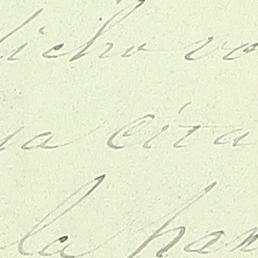 dicho vo
ya cita
la han